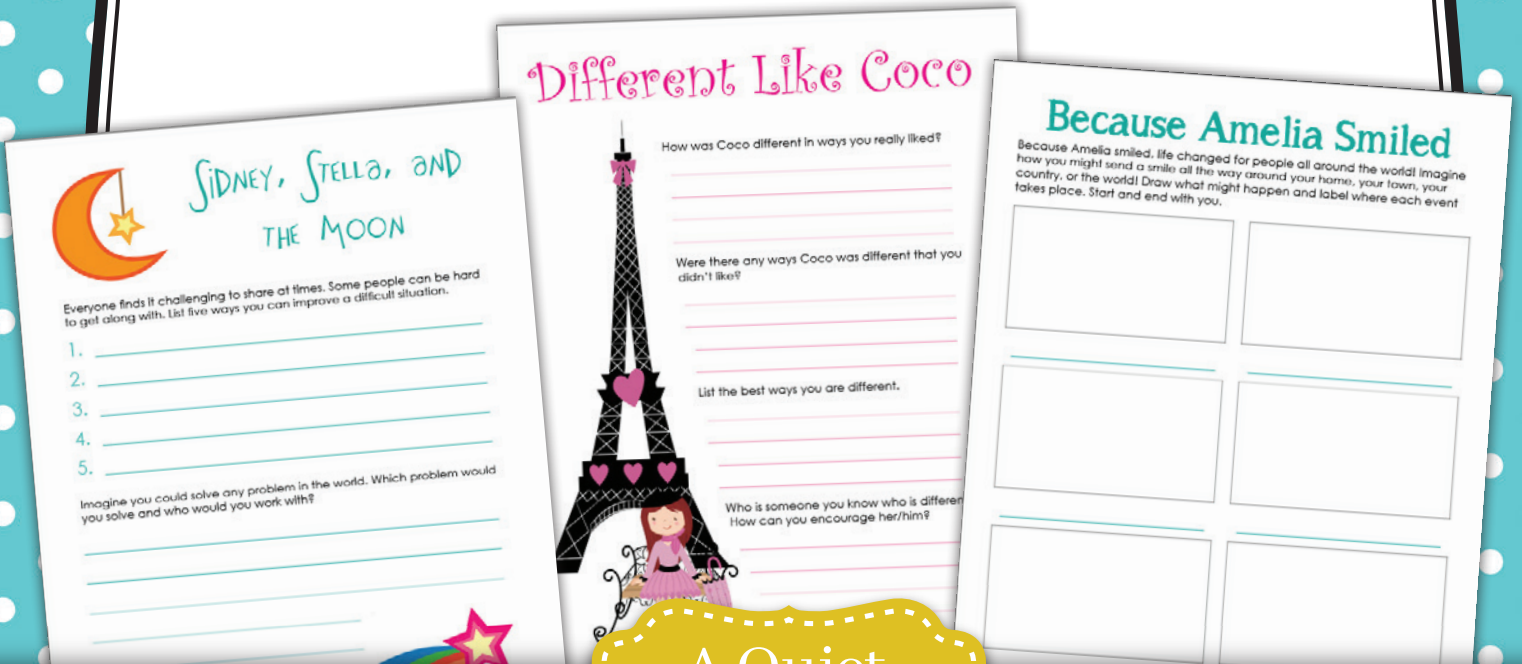 Sidney, Stella, and
the Moon
Everyone finds it challenging to share at times. Some people can be hard
to get along with. List five ways you can improve a difficult situation.
1.
2.
3.
4.
5.
Imagine you could solve any problem in the world. Which problem would
you solve and who would you work with?
Different Like Coco
How was Coco different in ways you really liked?
Were there any ways Coco was different that you
didn't like?
List the best ways you are different.
Who is someone you know who is differen
How can you encourage her/him?
Because Amelia Smiled
Because Amelia smiled, life changed for people all around the world! Imagine
how you might send a smile all the way around your home, your town, your
country, or the world! Draw what might happen and label where each event
takes place. Start and end with you.
A Quiet